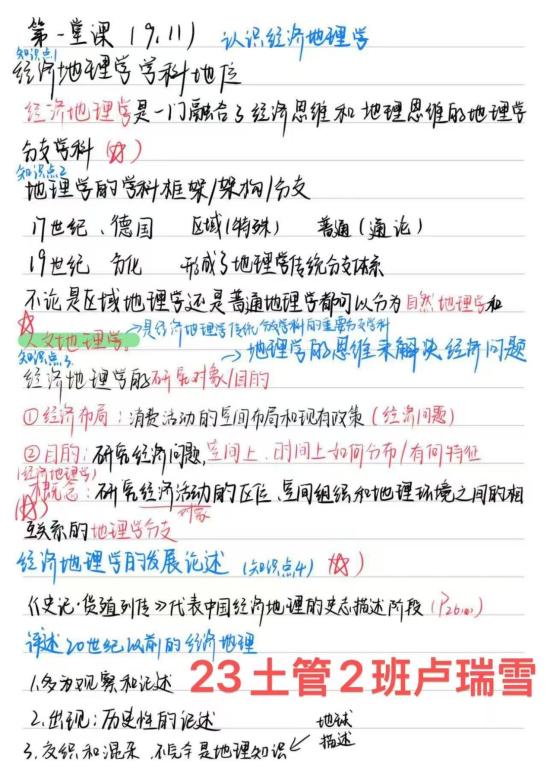 第一堂课 (9.11) 认识经济地理学
知识点1
经济地理学学科地位
经济地理学是一门融合了经济思维和地理思维的地理学
分支学科 (☆)
知识点2
地理学的学科框架/架构/分支
17世纪、德国 区域(特殊) 普通(通论)
19世纪 分化 形成了地理学传统分支体系
不论是区域地理学还是普通地理学都可以分为自然地理学和
☆
人文地理学。→是经济地理学传统分支学科的重要分支学科
知识点3. →地理学的思维来解决经济问题
经济地理学的研究对象/目的
①经济布局:消费活动的空间布局和现有政策(经济问题)
②目的:研究经济问题,空间上、时间上如何分布/有何特征
(经济地理学)
概念:研究经济活动的区位、空间组织和地理环境之间的相
(☆) 对象
互关系的地理学分支
经济地理学的发展论述 (知识点4) (☆)
《史记·货殖列传》代表中国经济地理的史志描述阶段
评述20世纪以前的经济地理
1.多为观察和记述
23土管2班卢瑞雪
2.出现:历史性的记述 地球
3.交织和混杂,不完全是地理知识← 描述